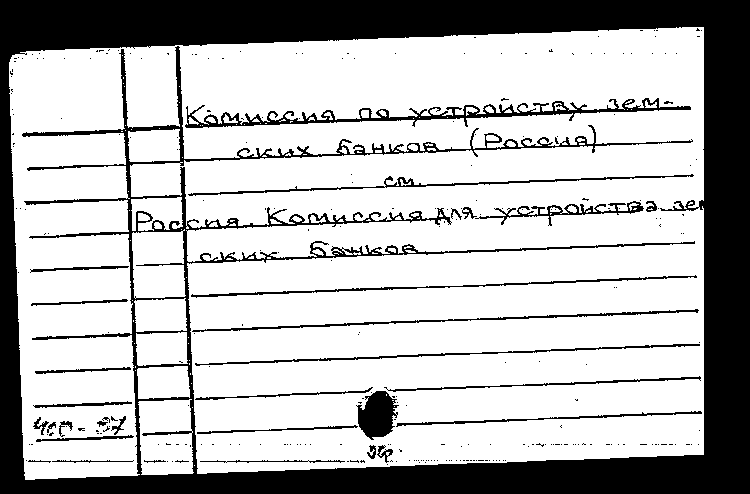 Комиссия по устройству зем-
ских банков (Россия)
см.
Россия. Комиссия для устройства зем
ских банков
400-87